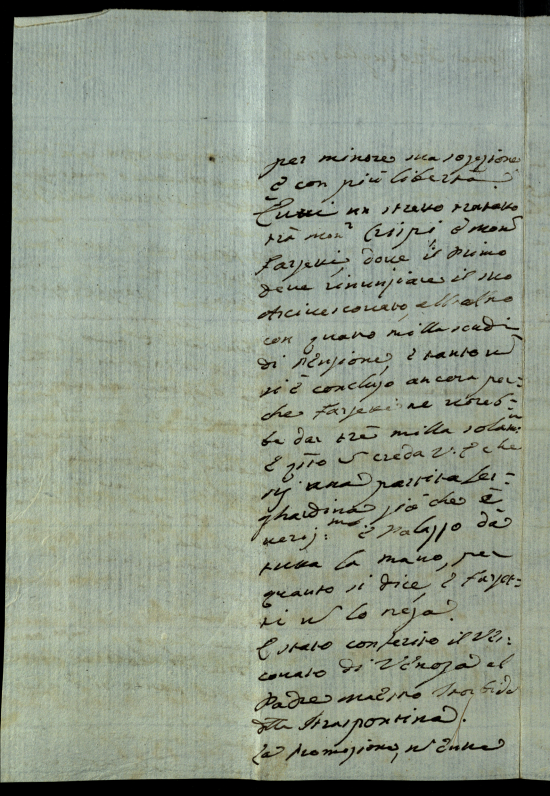 per minore sua sogezione
è con più libertà.
È un stretto trattato
trà mon.r Crispi, è mon.r
Farsetti, dove il Primo
deve rinunziare il suo
Arcivescovato, all'altro
con quatro milla scudi
di Pensione, è tanto n
si è concluso ancora per=
che Farsetti ne voreb=
be dar trè milla
È q̃sto n creda V. E. che
sij una partita
già che è
veris.mo è Palazzo dà
tutta la mano, per
quanto si dice, è Farset=
ti n lo nega.
È stato conferito il Ves:
covato di Venosa al
Padre maestro
della Traspontina.
La Promozione, n è una